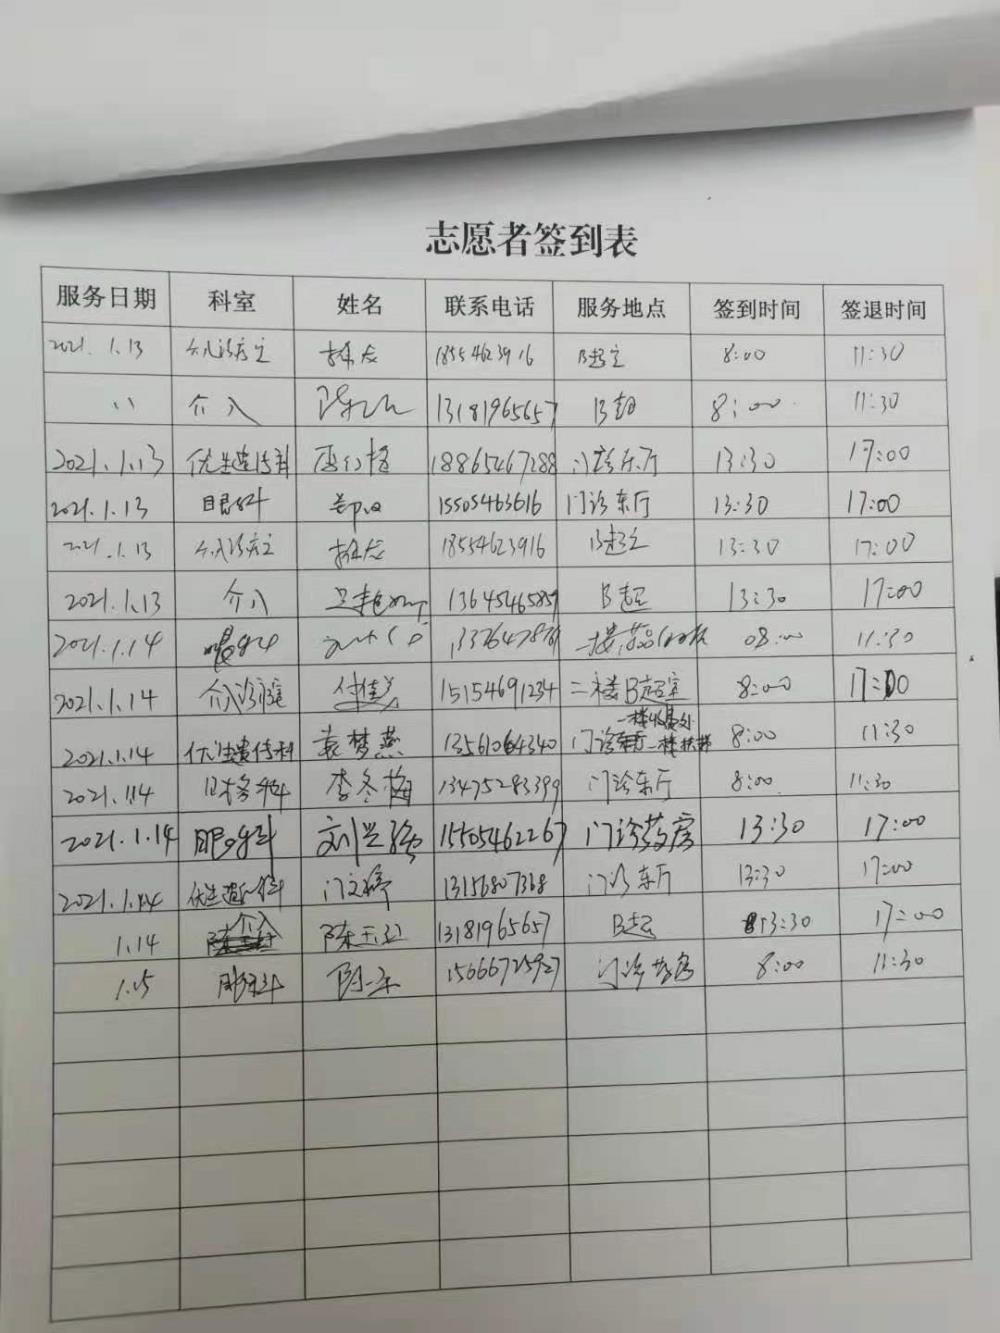 志愿者签到表
服务日期 科室 姓名 联系电话 服务地点 签到时间 签退时间
2021.1.13 介入诊疗 18554623916 B超室 8:00 11:30
〃 介入 13181965657 B超 8:00 11:30
2021.1.13 优生遗传科 18865467288 门诊东厅 13:30 17:00
2021.1.13 眼科 15505463616 门诊东厅 13:30 17:00
2021.1.13 介入诊疗 18554623916 B超 13:30 17:00
2021.1.13 介入 B超 13:30 17:00
2021.1.14 眼科 08:00 11:30
2021.1.14 介入诊疗 15154691234 二楼B超室 8:00 17:00
2021.1.14 优生遗传科 袁梦燕 13561064340 门诊 一楼收费处 一楼扶梯 8:00 11:30
2021.1.14 李冬梅 13475283399 门诊东厅 8:00 11:30
2021.1.14 眼科 刘兰强 15505462267 门诊药房 13:30 17:00
2021.1.14 优生遗传科 门文婷 13156807368 门诊东厅 13:30 17:00
1.14 介入 陈玉 13181965657 B超 13:30 17:00
1.15 眼科 15666725927 门诊药房 8:00 11:30